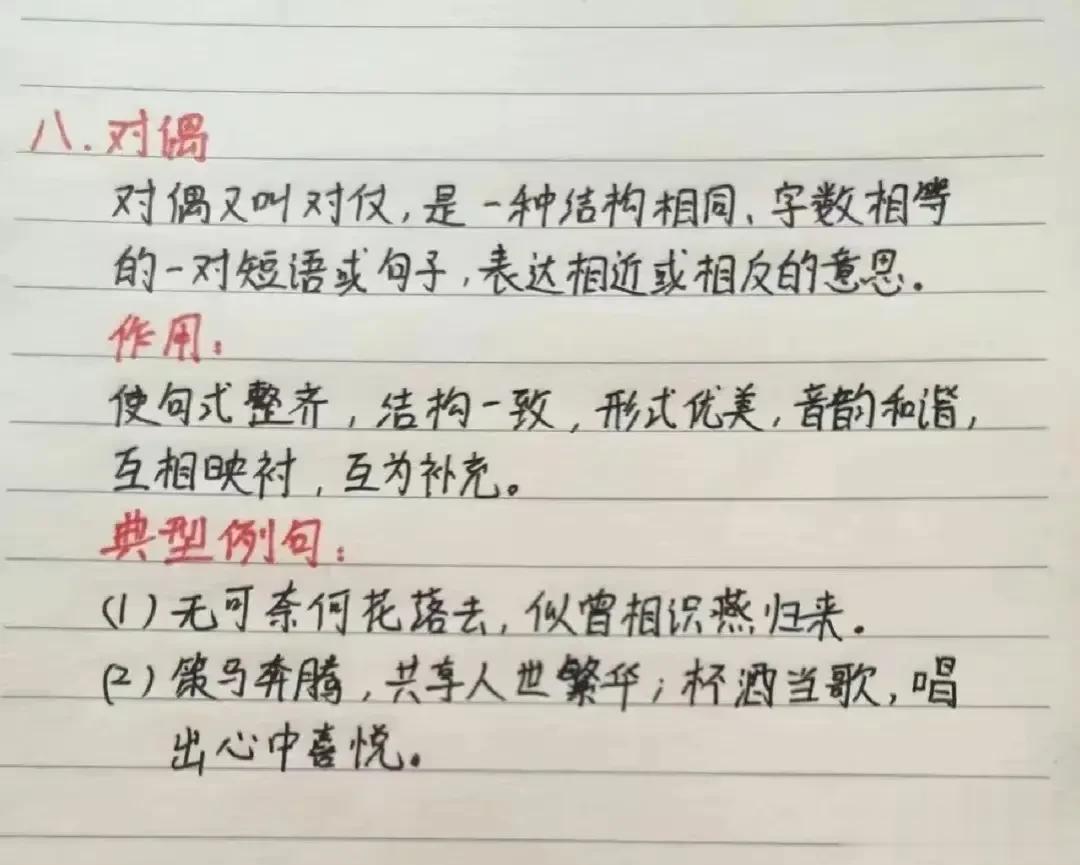 八.对偶
对偶又叫对仗,是一种结构相同、字数相等
的一对短语或句子,表达相近或相反的意思.
作用:
使句式整齐,结构一致,形式优美,音韵和谐,
互相映衬,互为补充。
典型例句:
(1)无可奈何花落去,似曾相识燕归来.
(2)策马奔腾,共享人世繁华;杯酒当歌,唱
出心中喜悦。